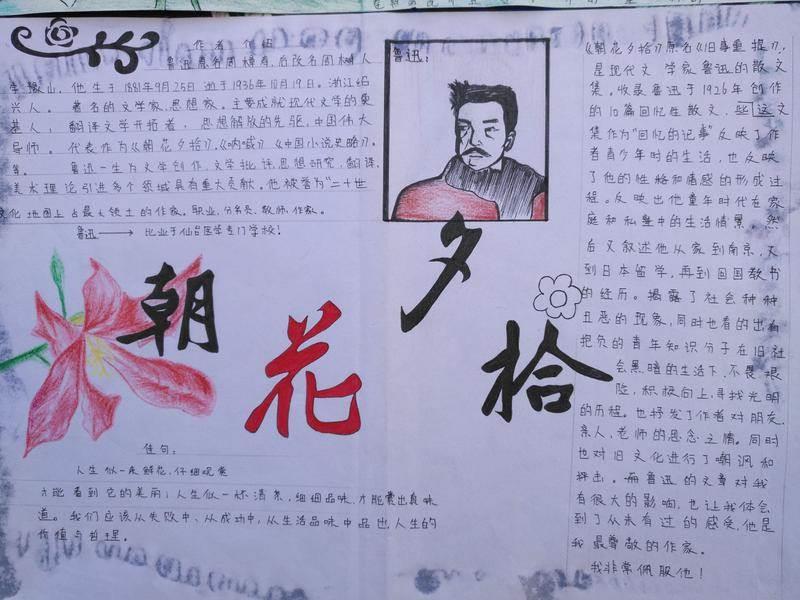 作者介绍
鲁迅原名周樟寿,后改名周树人
字豫山,他生于1881年9月25日 逝于1936年10月19日。浙江绍
兴人。著名的文学家,思想家。主要成就现代文学的奠
基人,翻译文学开拓者,思想解放的先驱,中国伟大
导师。代表作为《朝花夕拾》,《呐喊》《中国小说史略》。
等。鲁迅一生为文学创作,文学批评,思想研究,翻译,
美术理论引进多个领域具有重大贡献。他被誉为“二十世
文化地图上占最大领土的作家。职业,教师,作家。
鲁迅→毕业于仙台医学专门学校!
鲁迅:
朝花夕拾
佳句:
人生似一朵鲜花,仔细观赏
才能看到它的美丽;人生似一杯清茶,细细品味,才能尝出真味
道。我们应该从失败中、从成功中,从生活品味中品出人生的
价值与哲理。
《朝花夕拾》原名《旧事重提》,
是现代文学家鲁迅的散文
集。收录鲁迅于1926年创作
的10篇回忆性散文,些这文
集作为“回忆的记事”反映了作
者青少年时的生活,也反映
了他的性格和情感的形成过
程。反映出他童年时代在家
庭和私塾中的生活情景,然
后又叙述他从家到南京,又
到日本留学,再到回国教书
的经历。揭露了社会种种
丑恶的现象,同时也看的出有
抱负的青年知识分子在旧社
会黑暗的生活下,不畏艰
险,积极向上,寻找光明
的历程。也抒发了作者对朋友,
亲人,老师的思念之情。同时
也对旧文化进行了嘲讽和
抨击。鲁迅的文章对我
有很大的影响,也让我体会
到了从未有过的感受,他是
我最尊敬的作家。
我非常佩服他!